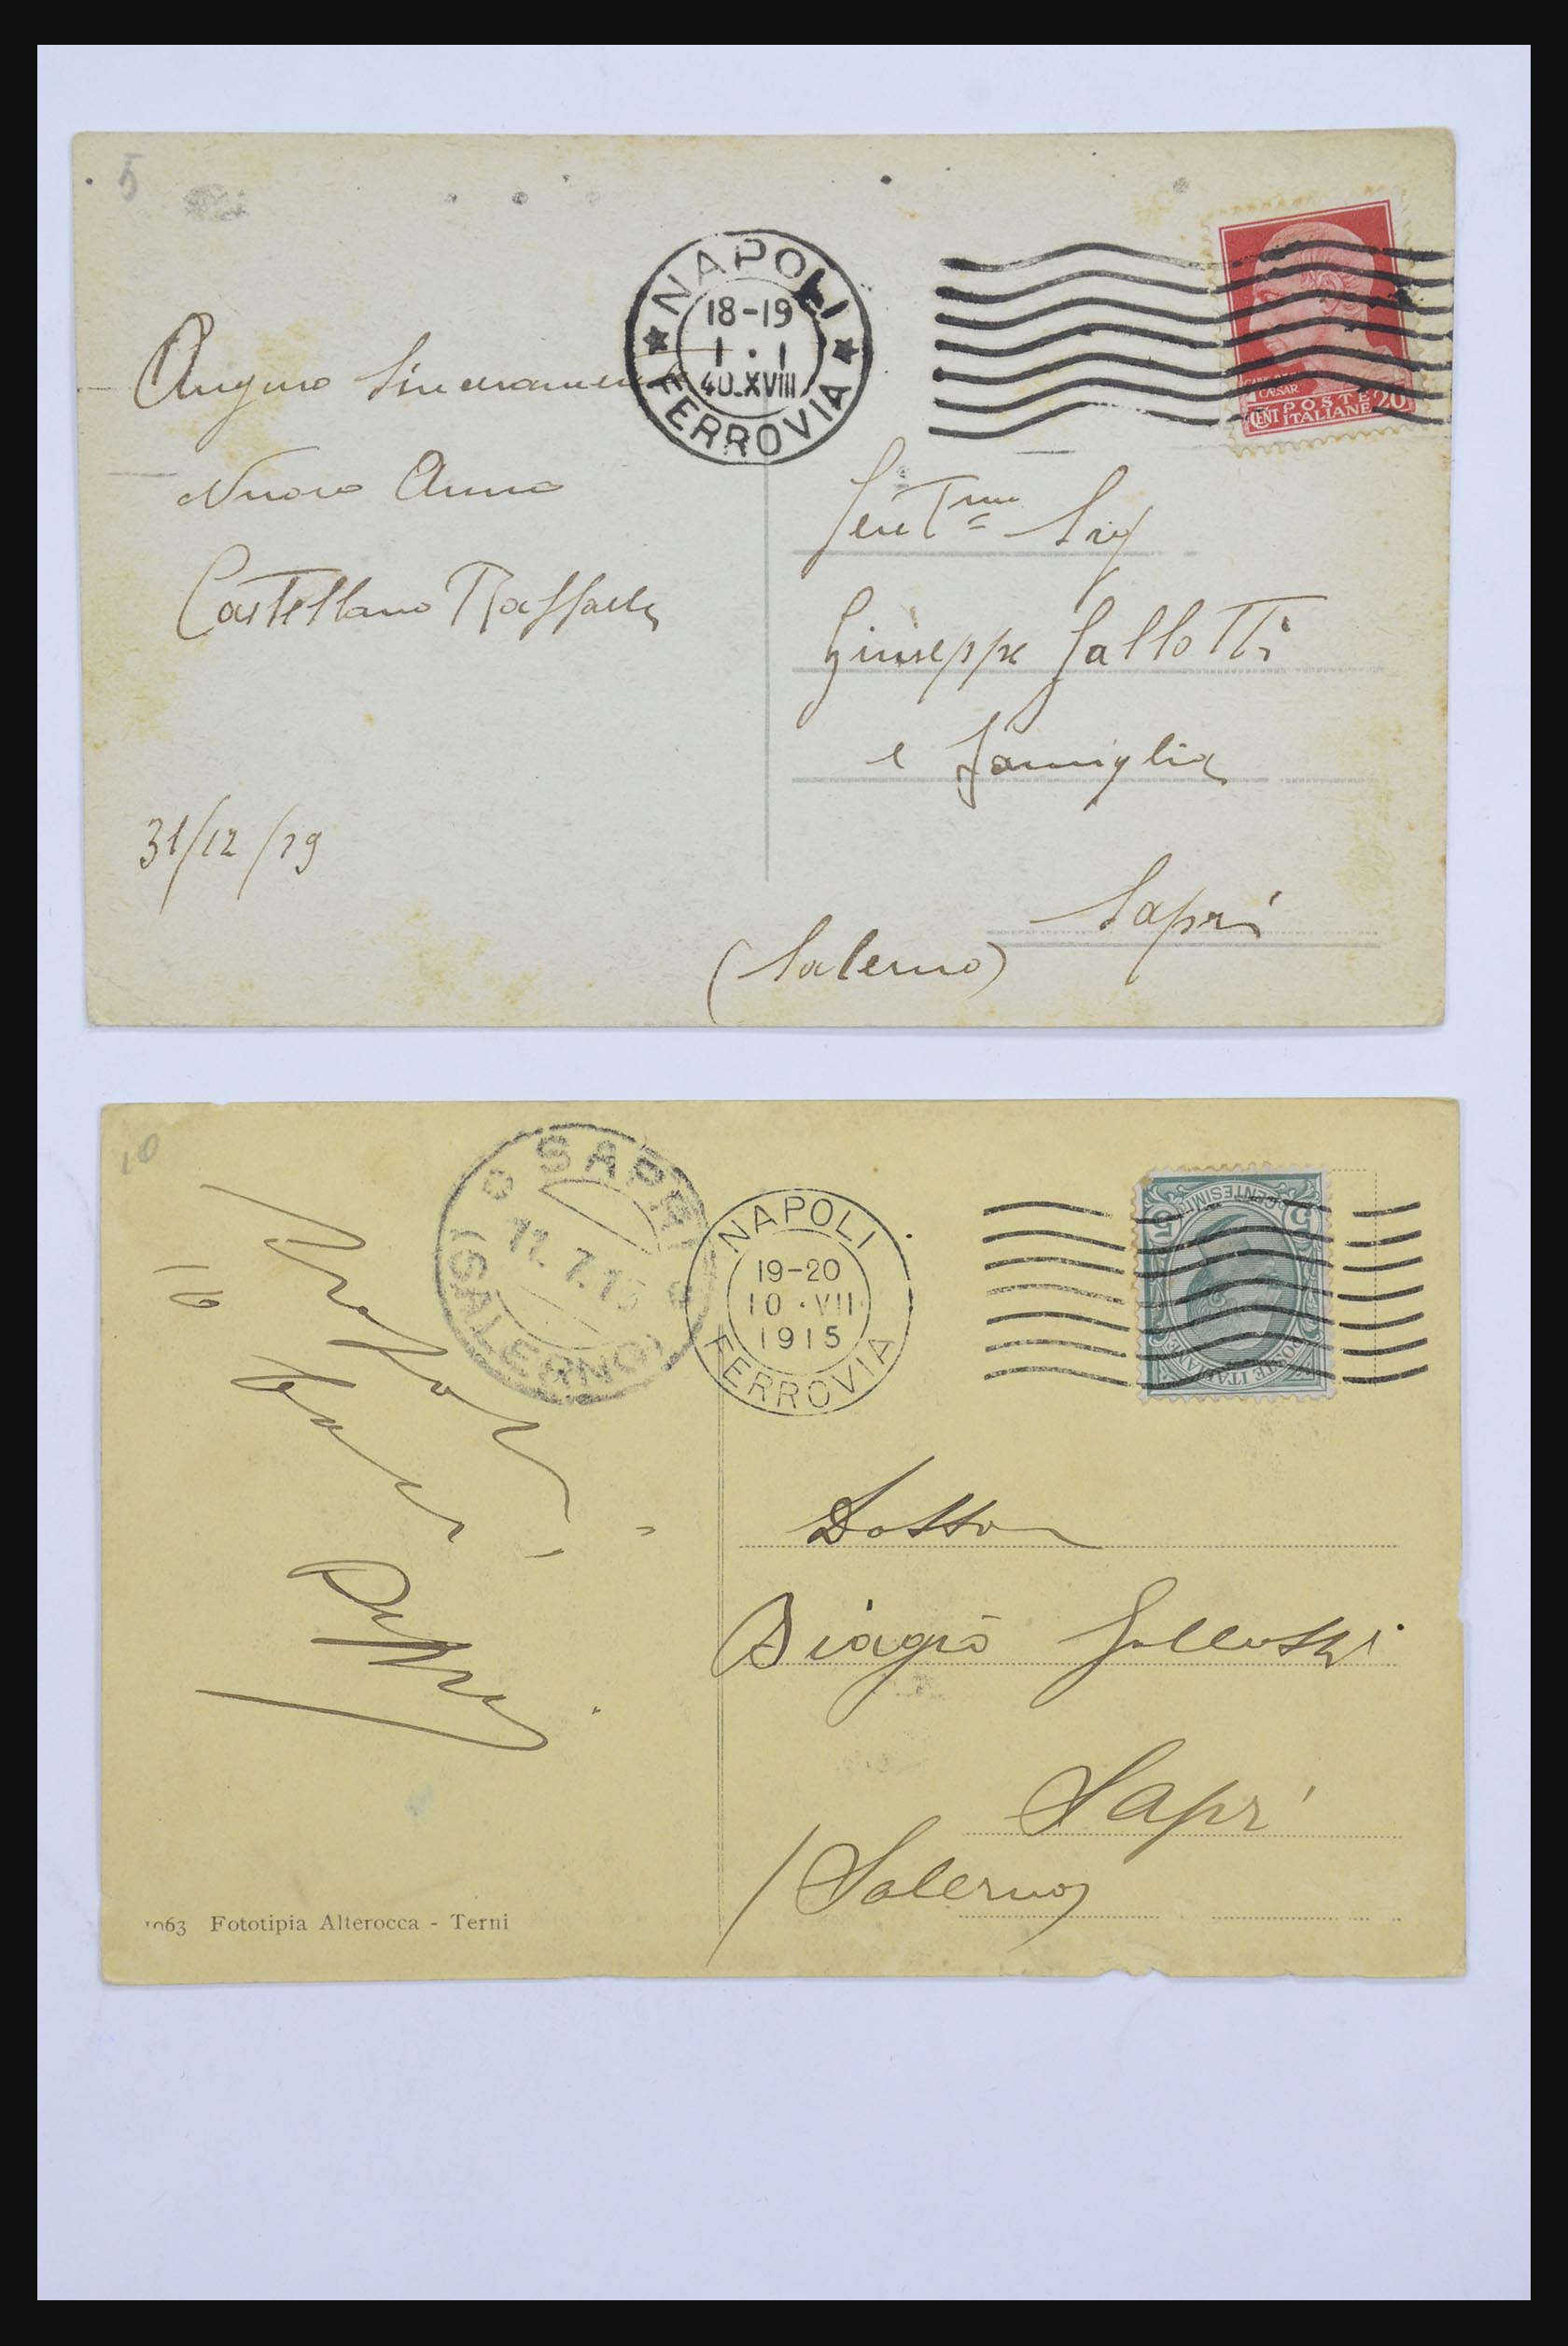 5
NAPOLI
18-19
1 · 1
40.XVIII
FERROVIA
CAESAR
CENT POSTE ITALIANE 20
Auguro sinceramente
Nuovo Anno
Castellano Raffaele
31/12/39
Gent.mo Sig
Giuseppe Gallotti
e famiglia
Sapri
(Salerno)
10
SAPRI
11.7.15
(SALERNO)
NAPOLI
19-20
10 · VII
1915
FERROVIA
5 CENTESIMI 5
POSTE ITALIANE
Dottor
Biagio Gallotti
Sapri
(Salerno)
1063 Fototipia Alterocca - Terni